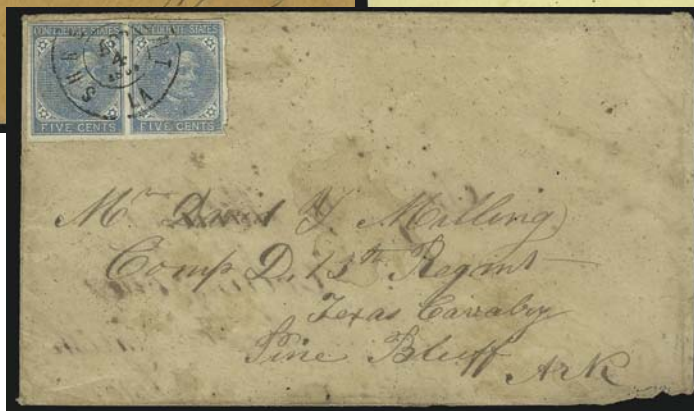 CONFEDERATE STATES CONFEDERATE STATES
FIVE CENTS FIVE CENTS
LA
Mr David Y. Milling
Comp D. 15th Regmt
Texas Cavalry
Pine Bluff
Ark